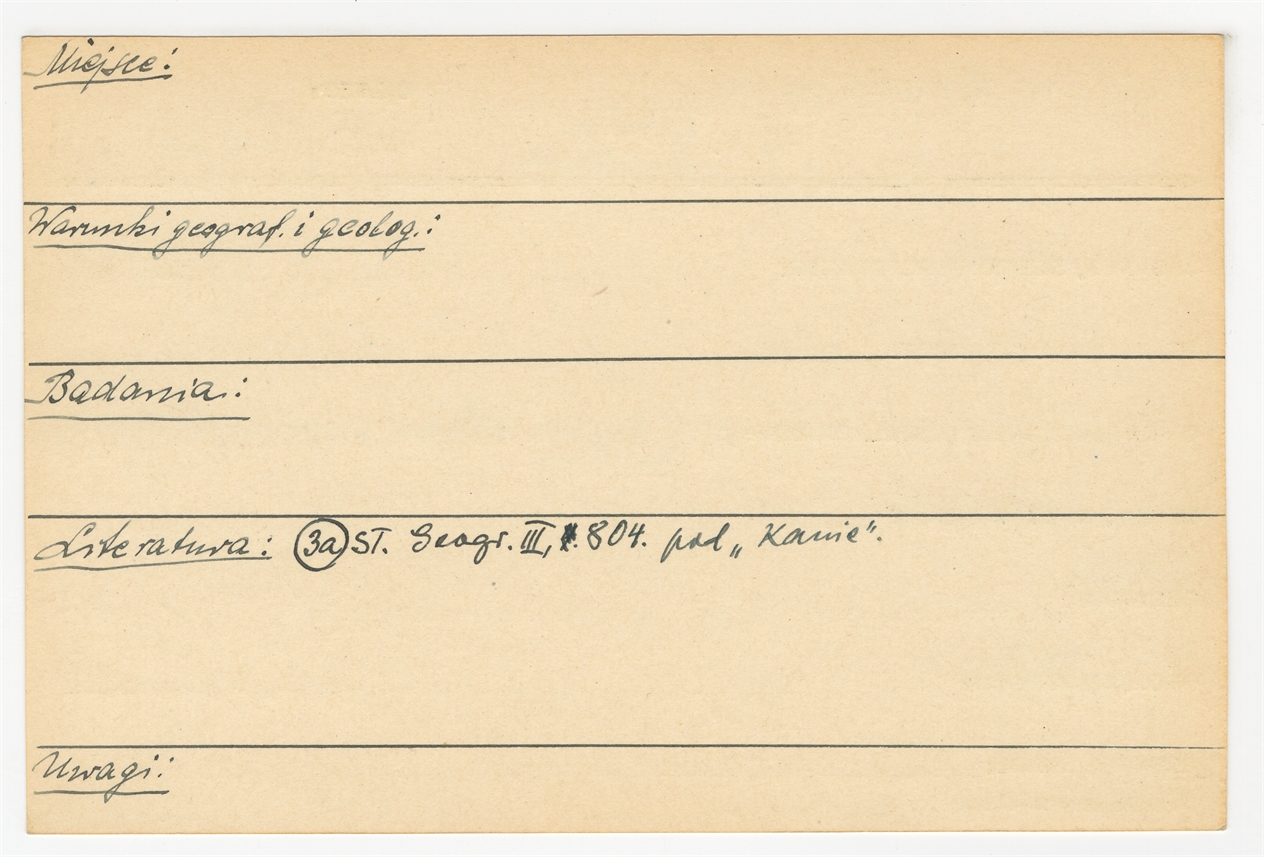 Miejsce:
Warunki geograf. i geolog.:
Badania:
Literatura: 3a ST. Geogr. III, s. 804. pod „Kanie".
Uwagi: